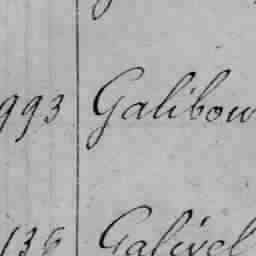 993 Galibou
136 Galivel